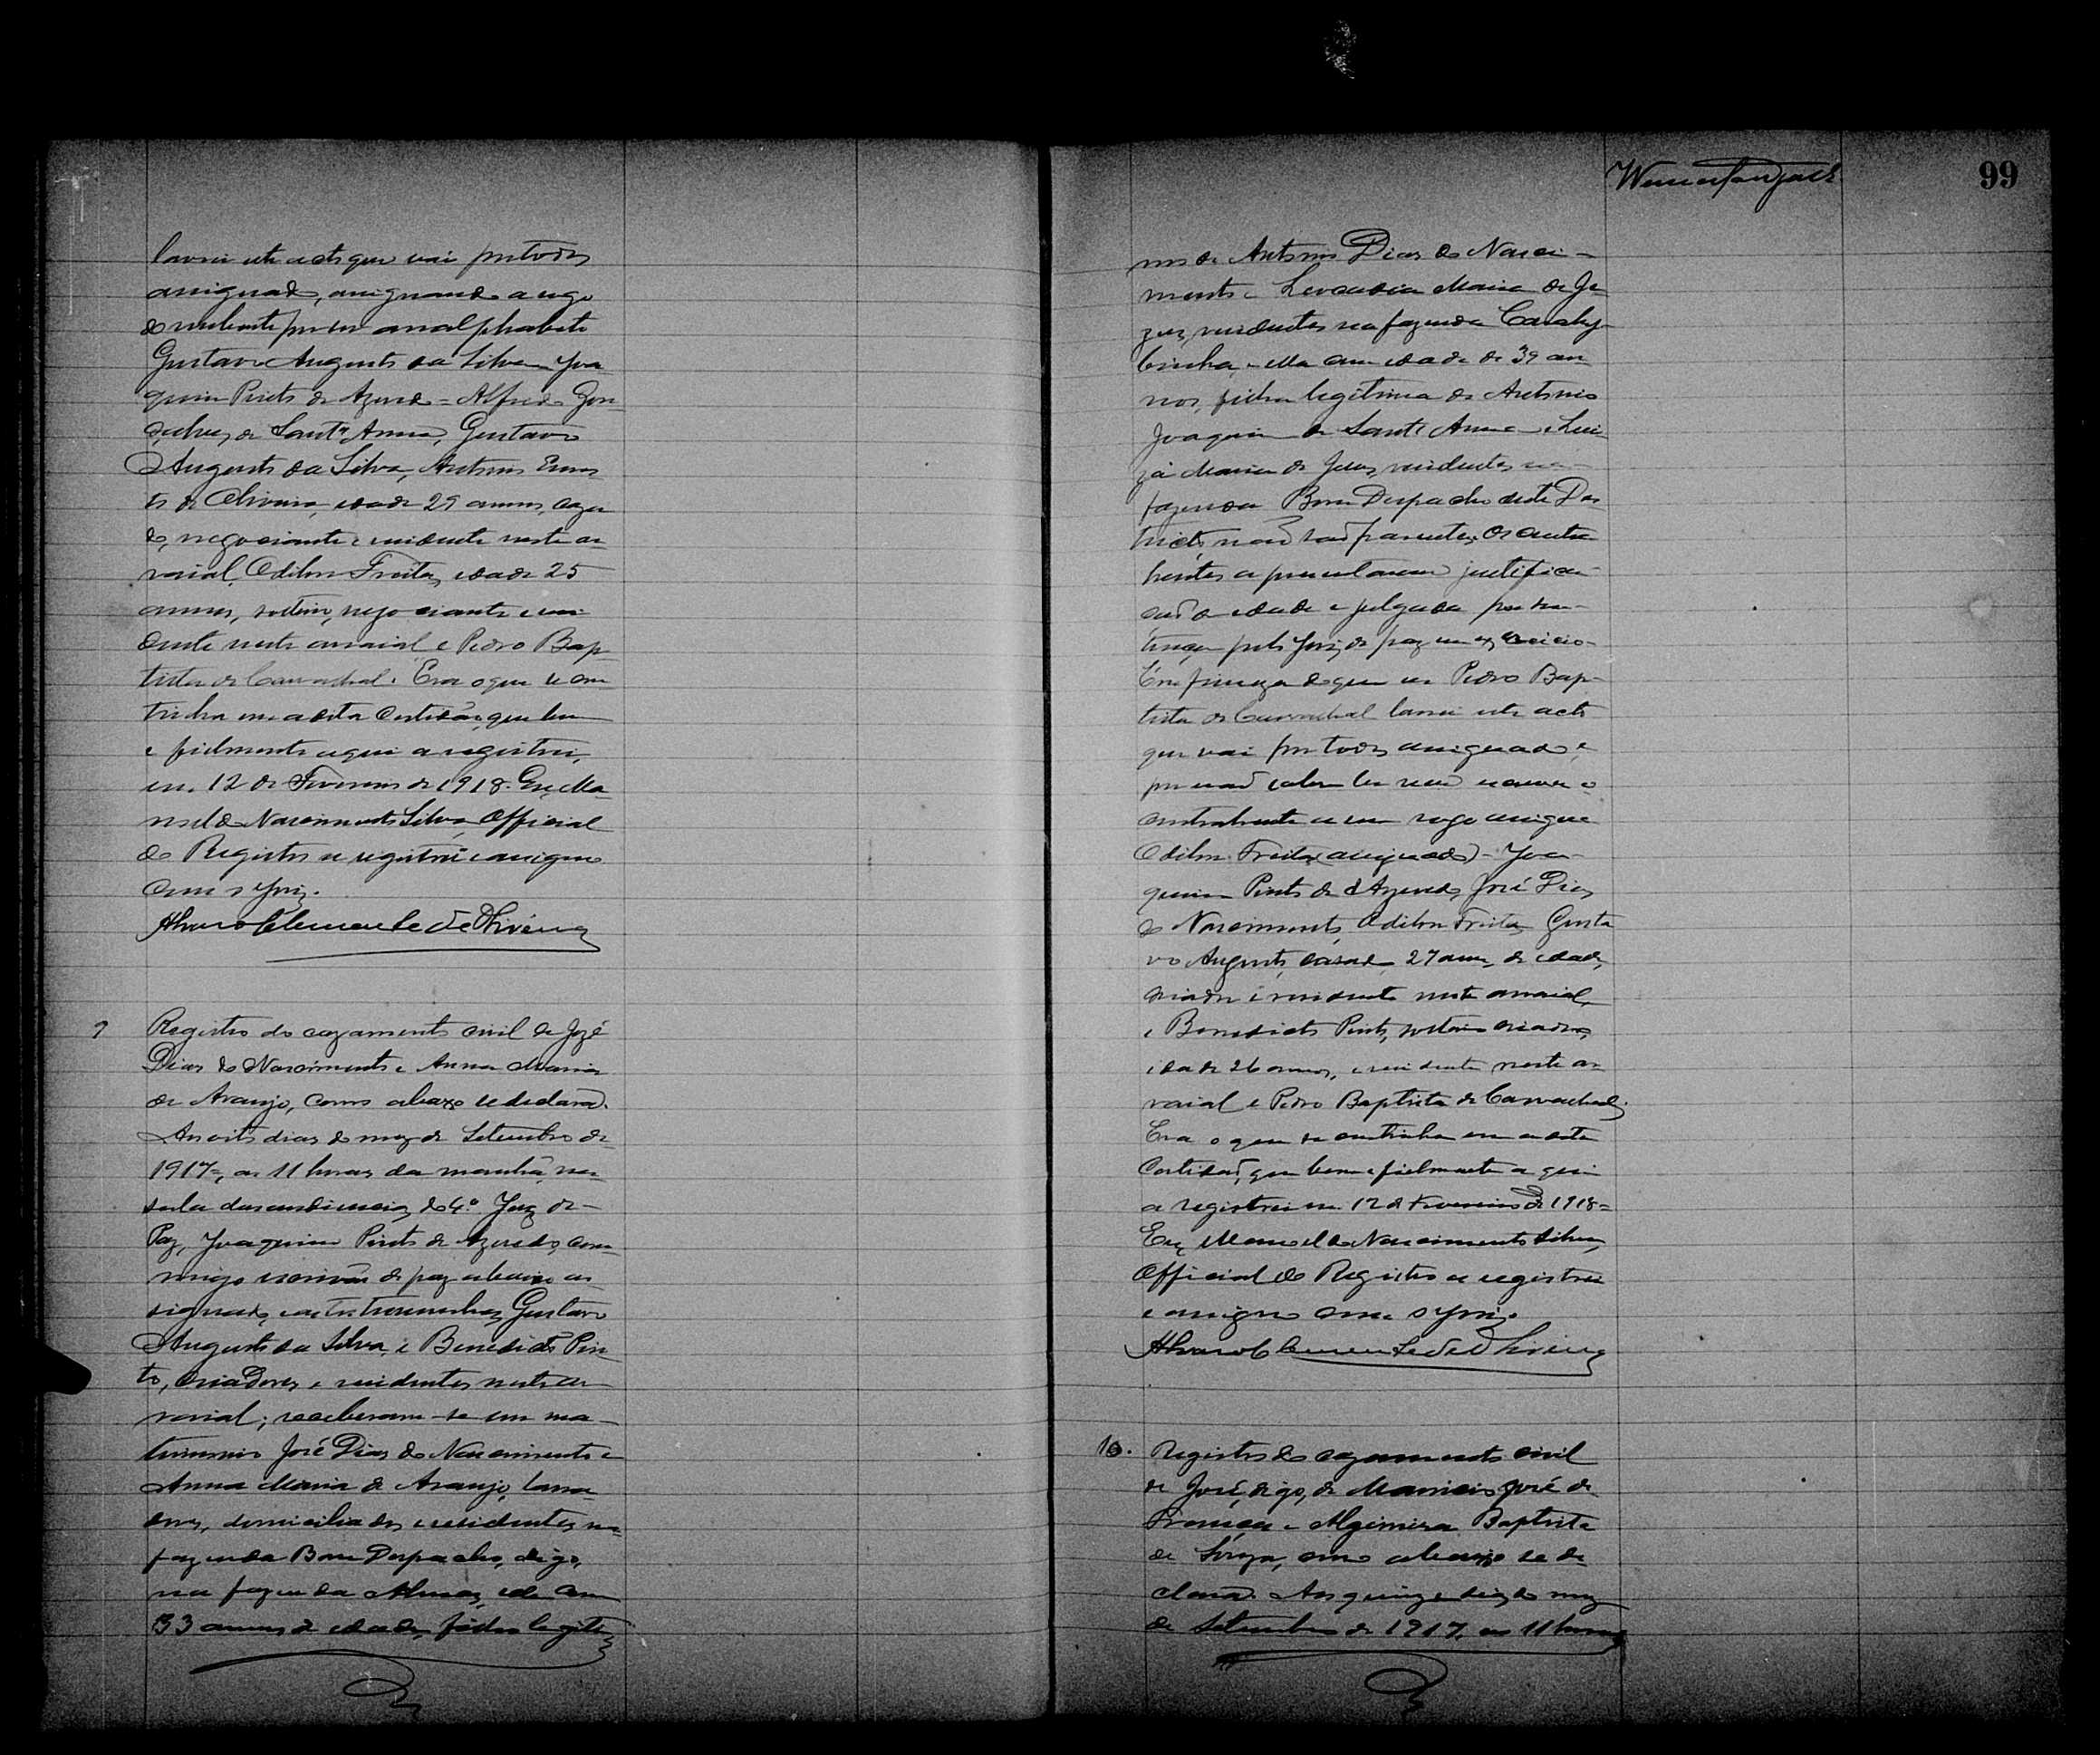 lavrei este acto que vai por todos
assignado, assignando a rogo
do nubente por ser analphabeto
Gustavo Augusto da Silva Joa
quim Pinto de Azevedo = Alfredo Gon
çalves de Sant'Anna, Gustavo
Augusto da Silva, Antonio Ernes
to de Oliveira, idade 29 annos, caza
do, negociante e residente neste ar
raial, Odilon Freitas, idade 25
annos, solteiro, negociante e resi
dente neste arraial e Pedro Bap
tista de Carvalhal. Era o que se con
tinha em a dita Certidão, que bem
e fielmente aqui a registrei,
em 12 de Fevereiro de 1918. Eu, Ma
noel do Nascimento Silva, Official
do Registro a registrei e assigno
com o Juiz.
Alvaro Clemente de Oliveira
9 Registro do cazamento civil de Jozé
Dias do Nascimento e Anna Maria
de Araujo, como abaxo se declara.
Aos oito dias do mez de Setembro de
1917=, as 11 horas da manhã, na
sala das audiencias do 4º Juiz de
Paz, Joaquim Pinto de Azevedo, com
migo escrivão de paz abaixo as
signado, e as testemunhas, Gustavo
Augusto da Silva, e Benedicto Pin
to, criadores e residentes neste ar
raial; receberam-se em ma-
trimonio José Dias do Nascimento e
Anna Maria de Araujo, lavra
dores, domiciliados e residentes na
fazenda Bom Despacho, digo,
na fazenda Almas, elle com
33 annos de idade, filho legiti
99
mo de Antonio Dias do Nasci-
mento e Leocadia Maria de Je
zus, residentes na fazenda
e ella com idade de 39 an
nos, filha legitima de Antonio
Joaquim de Sant'Anna e Lui
za Maria de Jesus, residentes na
fazenda Bom Despacho deste Dis
tricto, não são parentes. Os contra
hentes apresentaram justifica
ção de idade e julgada por sen-
tença pelo Juiz de paz em exercicio-
Em firmeza do que eu Pedro Bap-
tista de Carvalhal lavrei este acto
que vai por todos assignado e
por não saber ler nem escrever o
contrahente a seu rogo assigna
Odilon Freitas (assignado) - Joa-
quim Pinto de Azevedo, José Dias
do Nascimento, Odilon Freitas Gusta
vo Augusto, casado, 27 annos de idade,
criador e residente neste arraial,
e Benedicto Pinto, solteiro criador,
idade 26 annos, e residente neste ar
raial e Pedro Baptista de Carvalhal.
Era o que se continha em a dita
Certidão, que bem e fielmente aqui
a registrei em 12 de Fevereiro de 1918=
Eu, Manoel do Nascimento Silva,
Official do Registro a registrei
e assigno com o Juiz.
Alvaro Clemente de Oliveira
10. Registro do cazamento civil
de José, digo, de Mauricio José de
França e Algimira Baptista
de Souza, como abaixo se de
clara. Aos quinze dias do mez
de Setembro de 1917, as 11 horas